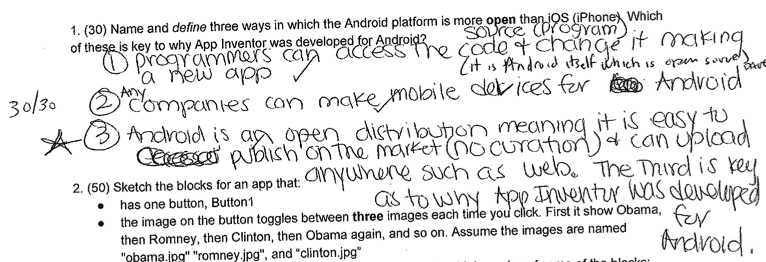 1. (30) Name and define three ways in which the Android platform is more open than iOS (iPhone). Which
of these is key to why App Inventor was developed for Android?
① programmers can access the source (program) code & change it making
a new app ✓ (it is Android itself which is open source)
30/30
② Any companies can make mobile devices for Android
③ Android is an open distribution meaning it is easy to
publish on the market (no curation) & can upload
anywhere such as web. The Third is key
as to why App Inventor was developed
for
Android.
2. (50) Sketch the blocks for an app that:
• has one button, Button1
• the image on the button toggles between three images each time you click. First it show Obama,
then Romney, then Clinton, then Obama again, and so on. Assume the images are named
"obama.jpg" "romney.jpg", and "clinton.jpg"